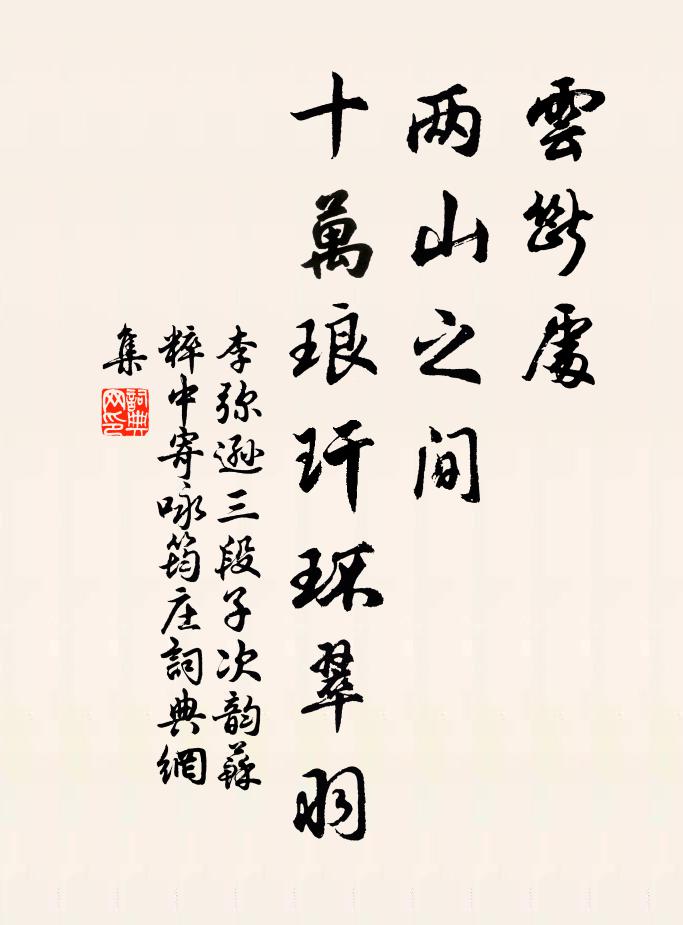 雲斷處
两山之间
十萬琅玕环翠羽
李弥遜三段子次韵蘇
粹中寄咏筠庄詞典網
集
詞典网印